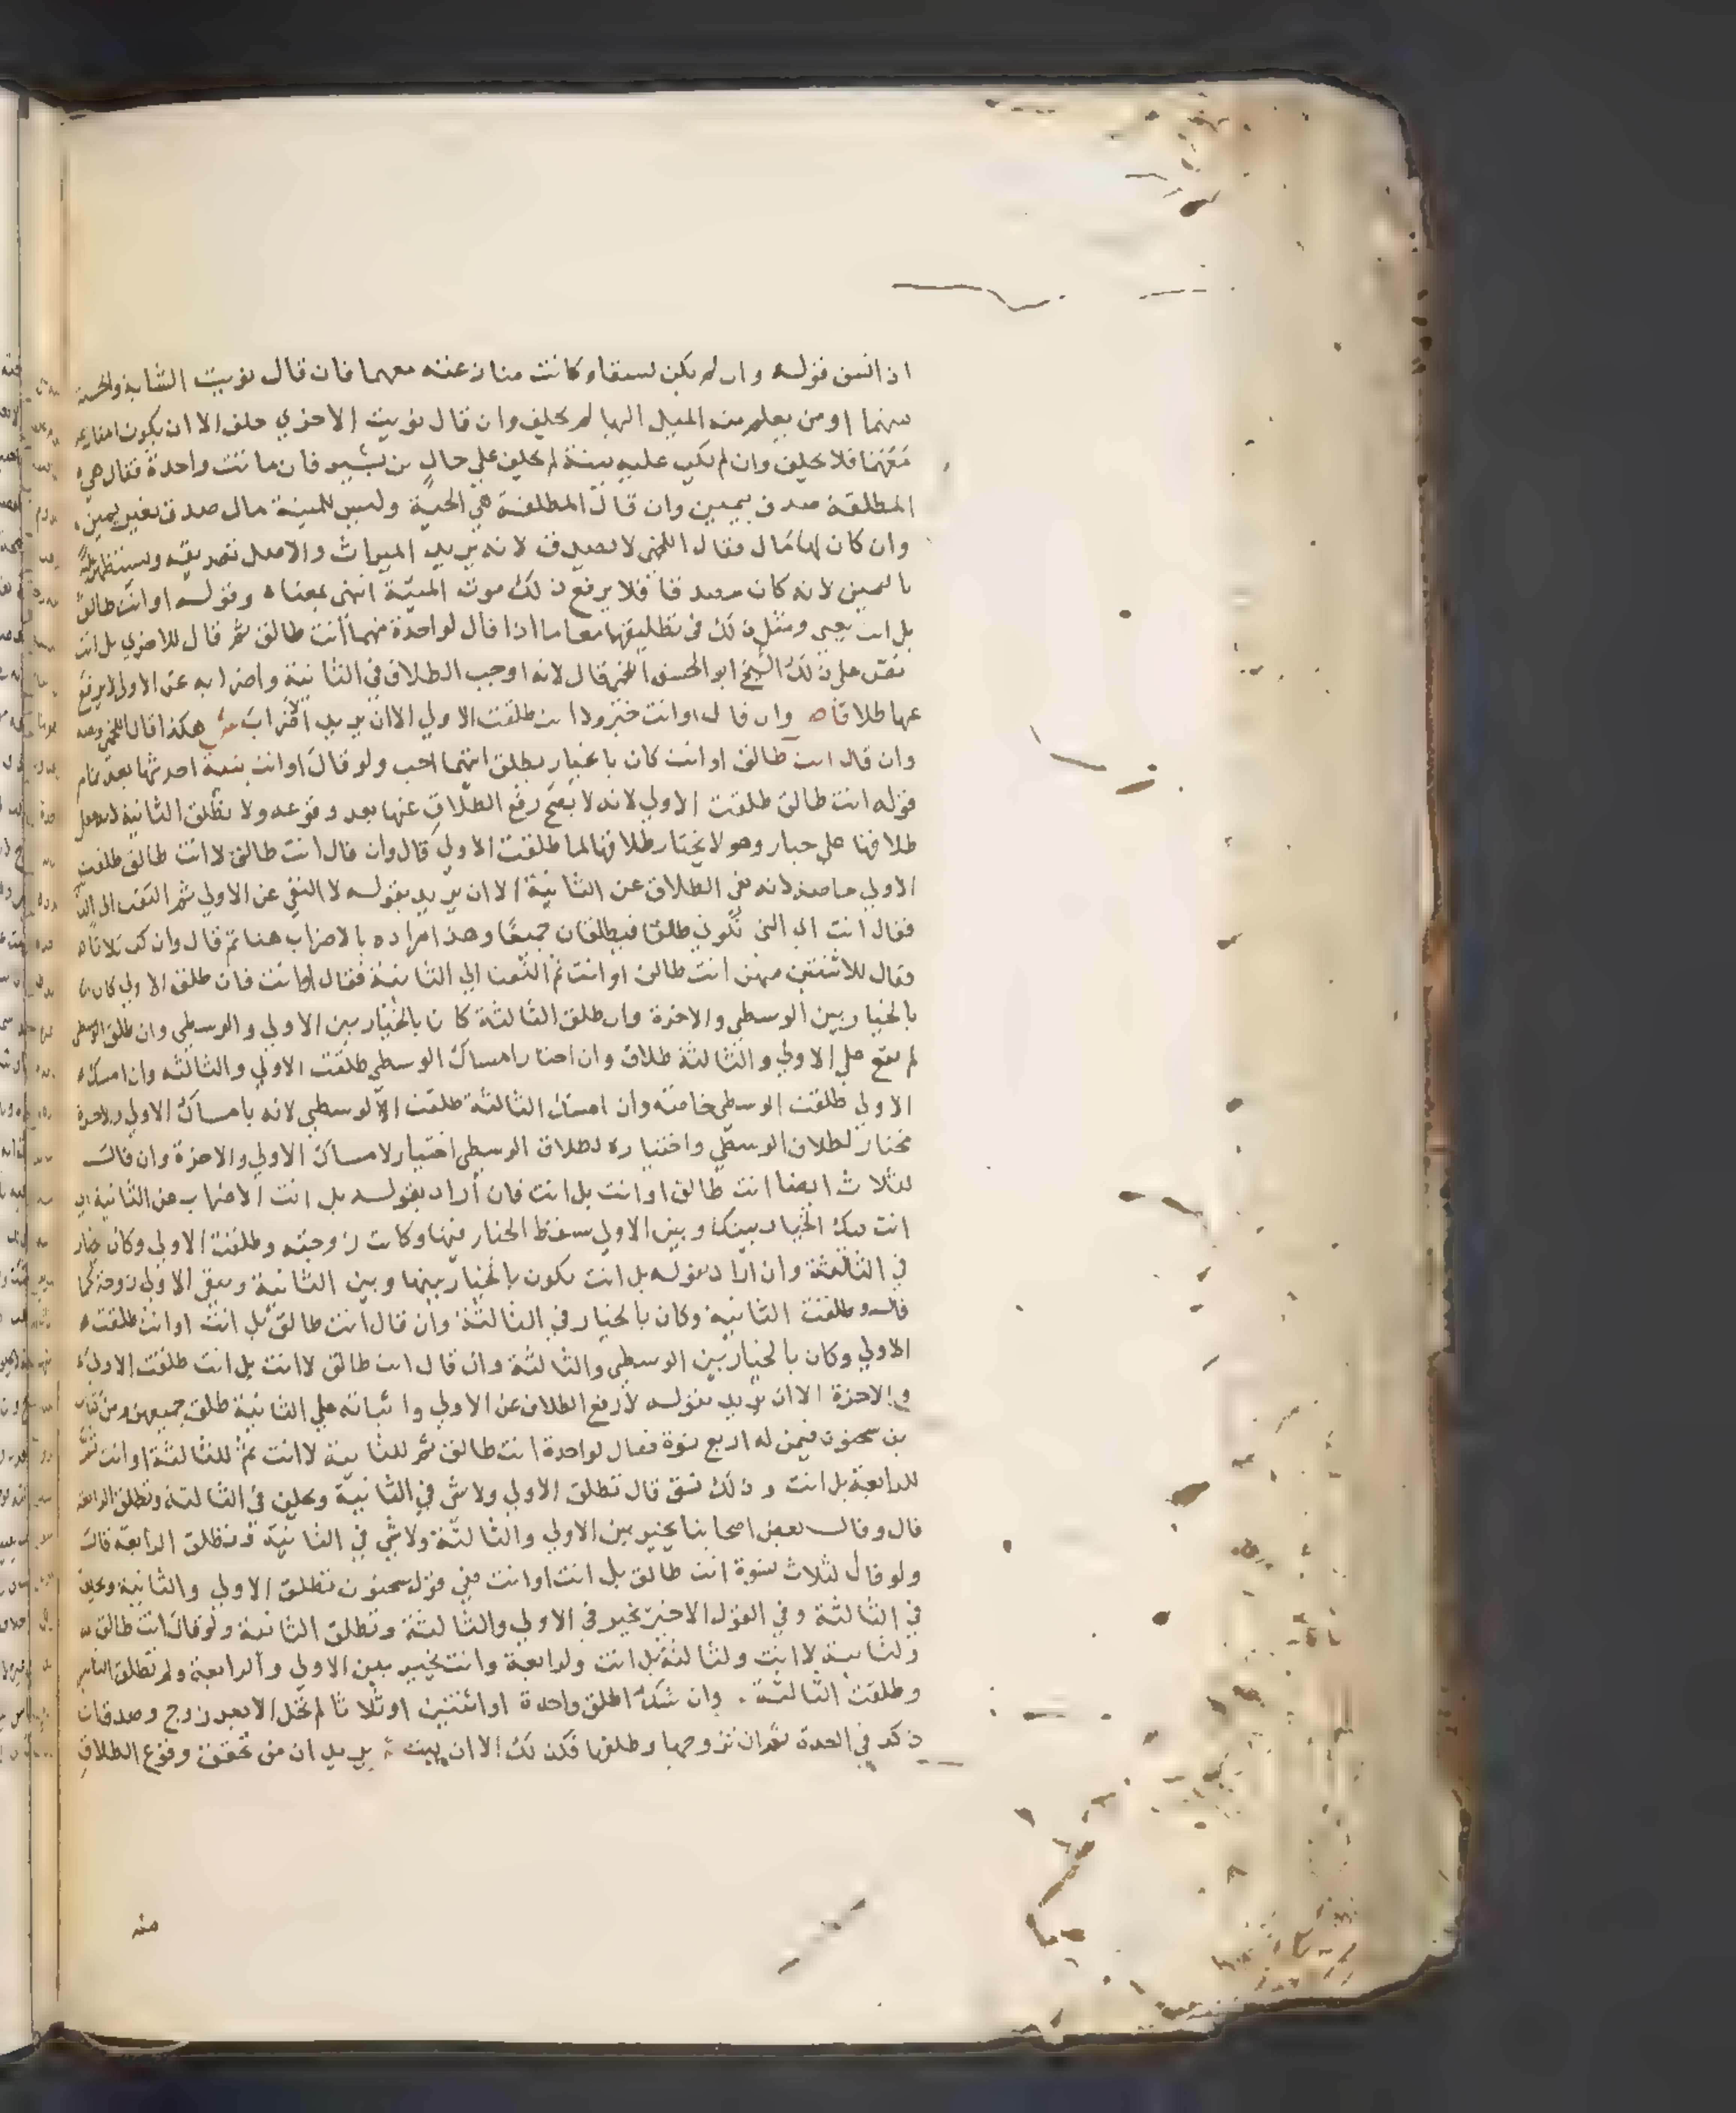 اذا تبين قوله وان لم يكن لسقاء كانت منازعته معهما فان قال نويت الشابة والحسنة
منهما او من يعلم منه الميل اليها لم يحلف وان قال نويت الاخري حلف الا ان يكون
فلا يحلف وان لم تكن عليه بينة لم يحلف علي حال بن بشير فان ماتت واحدة فقال هي
المطلقة صدق بيمين وان قال المطلقة هي الحية وليس للميتة مال صدق بغير يمين
وان كان لها مال فقال اللخمي لا يصدق لانه يريد الميراث والاصل تصديقه ويستظهر عليه
باليمين لانه كان مصدقا فلا يرفع ذلك موت الميتة انتهي بمعناه وقوله او انت طالق
بل انت يعني ومثل ذلك في تطليقهما معا ما اذا قال لواحدة منهما انت طالق ثم قال للاخري بل انت
نص علي ذلك الشيخ ابو الحسن اللخمي قال لانه اوجب الطلاق في الثانية واضرابه عن الاولي لا يرفع
عنها طلاقا وان قال او انت خير ولا انت طلقت الاولي الا ان يريد الاضراب هكذا قال اللخمي ونصه
وان قال انت طالق او انت كان بالخيار يطلق ايتهما احب ولو قال او انت بنية احدثها بعد تمام
قوله انت طالق طلقت الاولي لانه لا يصح رفع الطلاق عنها بعد وقوعه ولا تطلق الثانية لانه جعل
طلاقها علي خيار وهو لا يختار طلاقها لما طلقت الاولي قال وان قال انت طالق لا انت طالق طلقت
الاولي خاصة لانه نفي الطلاق عن الثانية الا ان يريد بقوله لا النفي عن الاولي ثم التفت الي
فقال انت اي التي تكون طالقا فيطلقان جميعا وهذا مراده بالاضراب هنا ثم قال وان كن ثلاثا
وقال للاثنتين منهن انت طالق او انت ثم التفت الي الثانية فقال او انت فان طلق الاولي كان
بالخيار بين الوسطي والاخرة وان طلق الثالثة كان بالخيار بين الاولي والوسطي وان طلق الوسطي
لم يقع علي الاولي والثالثة طلاق وان اختار امساك الوسطي طلقت الاولي والثالثة وان امسك
الاولي طلقت الوسطي خاصة وان امسك الثالثة طلقت الوسطي لانه بامساك الاولي والاخرة
مختار لطلاق الوسطي واختياره لطلاق الوسطي اختيار لامساك الاولي والاخرة وان قال
لثلاث ايضا انت طالق او انت بل انت فان اراد بقوله بل انت الاضراب عن الثانية اي
انت يكون الخيار بينك وبين الاولي سقط الخيار فيها وكانت زوجته وطلقت الاولي وكان بالخيار
في الثالثة وان اراد بقوله بل انت يكون بالخيار بينها وبين الثانية وبقي الاولي زوجة كما
قال وطلقت الثانية وكان بالخيار في الثالثة وان قال انت طالق بل انت او انت طلقت
الاولي وكان بالخيار بين الوسطي والثالثة وان قال انت طالق لا انت بل انت طلقت الاولي
والاخرة الا ان يريد بقوله لا رفع الطلاق عن الاولي واثباته علي الثانية طلق جميعهن ومن كتاب
بن سحنون فيمن له اربع نسوة فقال لواحدة انت طالق ثم للثانية لا انت ثم للثالثة او انت ثم
للرابعة بل انت وذلك نسق قال تطلق الاولي ولا شي في الثانية ويحلف في الثالثة وتطلق الرابعة
قال وقال بعض اصحابنا يخير بين الاولي والثالثة ولا شي في الثانية وتطلق الرابعة قال
ولو قال لثلاث نسوة انت طالق بل انت او انت ففي قول سحنون تطلق الاولي والثانية ويحلف
في الثالثة وفي القول الاخر يخير في الاولي والثالثة وتطلق الثانية ولو قال انت طالق
ولثانية لا انت ولثالثة بل انت ولرابعة وانت يخير بين الاولي والرابعة ولم تطلق الثانية
وطلقت الثالثة وان شك اطلق واحدة او اثنتين او ثلاثا لم تحل الا بعد زوج وصدق ان
ذكر في العدة ثم ان تزوجها وطلقها فكذلك الا ان يبت يريد ان من تحقق وقوع الطلاق
منه